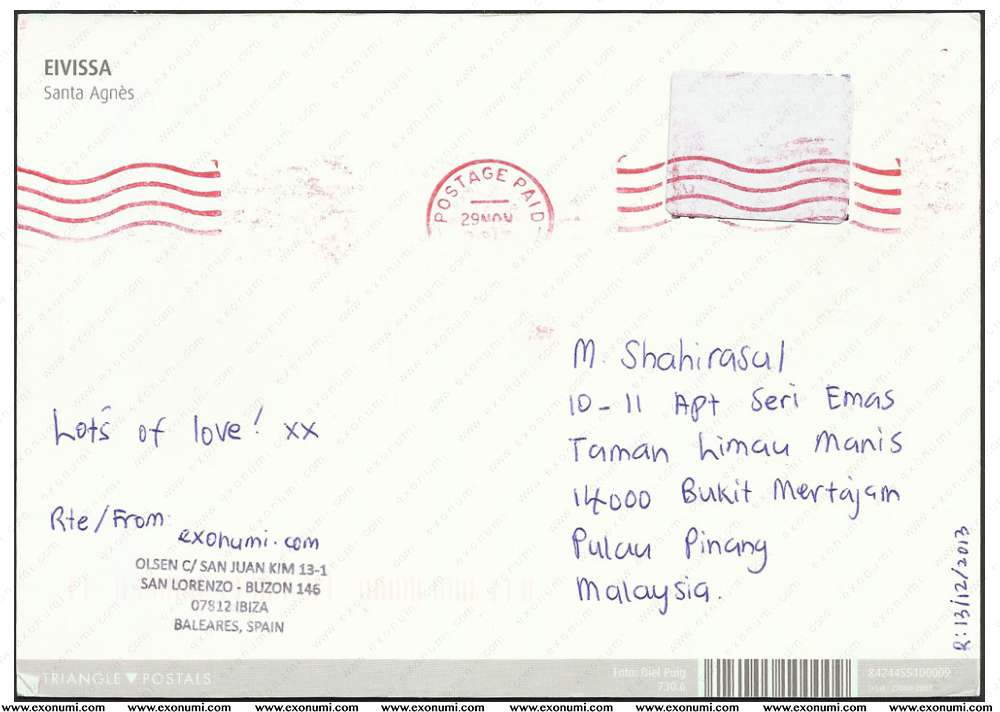 EIVISSA
Santa Agnès
POSTAGE PAID
29 NOV
M. Shahirasul
10-11 Apt Seri Emas
Taman Limau Manis
14000 Bukit Mertajam
Pulau Pinang
Malaysia.
Lots of love! xx
Rte/From:
exonumi.com
OLSEN C/ SAN JUAN KIM 13-1
SAN LORENZO - BUZON 146
07812 IBIZA
BALEARES, SPAIN
R: 13/12/2013
TRIANGLE▼POSTALS
Foto: Biel Puig
730.6
8424455100009
www.exonumi.com www.exonumi.com www.exonumi.com www.exonumi.com www.exonumi.com www.exonumi.com www.exonumi.com www.exonumi.com